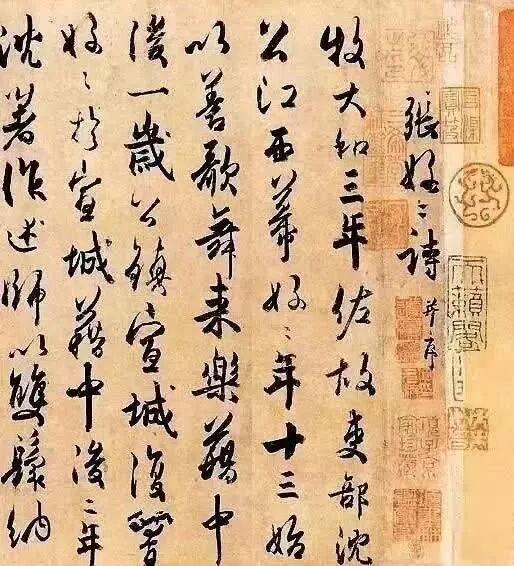 天籟閣
張好〻詩并序
牧大和三年佐故吏部沈
公江西幕好〻年十三始
以善歌舞來樂籍中
後一歲公鎮宣城復置
好〻於宣城籍中後二年
沈著作述師以雙鬟納